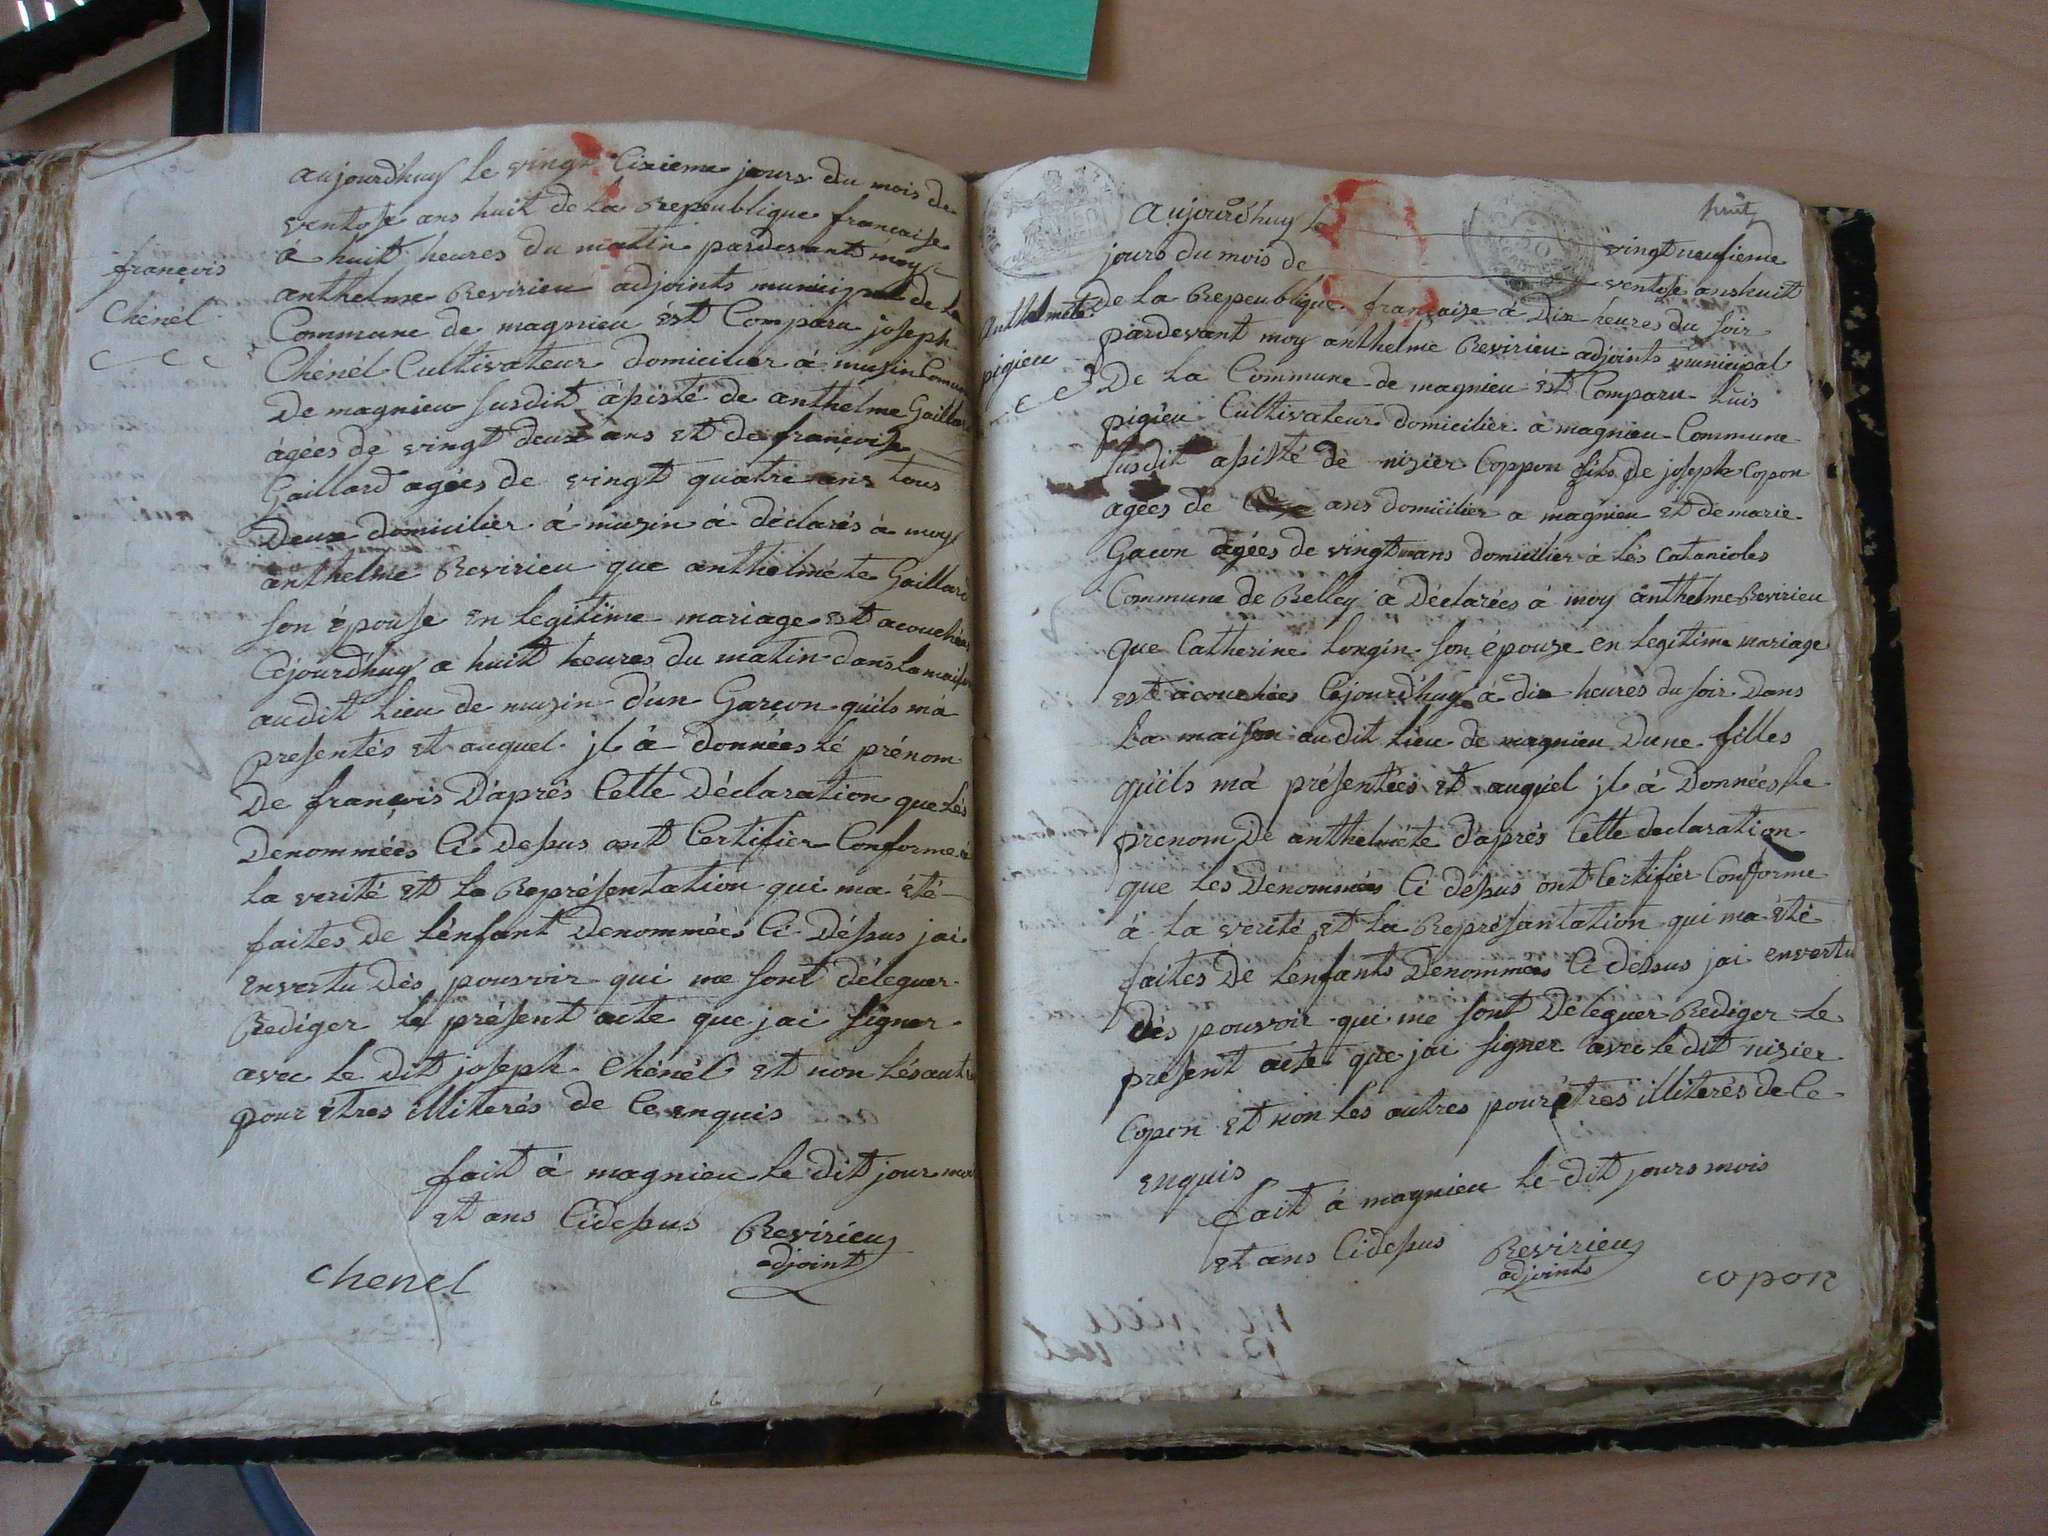 aujourdhuy le vingt Cixieme jours du mois de
ventose ans huit de la Repeublique francaise
à huit heures du matin pardevant moy
anthelme Revirieu adjoints municipal de la
Commune de magnieu est Comparu joseph
Chénél Cultivateur domicilier à muzin Comune
De magnieu susdit apisté de anthelme Gaillard
ágées de vingt deux ans et de françoise
Gaillard agées de vingt quatre ans tous
Deux domicilier à muzin à déclarés à moy
anthelme Revirieu que anthelméte Gaillard
son épouse en legitime mariage est acouchées
Cejourdhuy a huit heures du matin dans la maison
audit Lieu de muzin d'un Garcon quils má
presentés et auquel jl à données lé prénom
De françois D'aprés Cette Déclaration que lés
Denommées Ci depus ont Certifier Conforme à
la verité et la Représentation qui ma été
faites de lénfant Denommées Ci Dépus jai
envertu Dés pouvoir qui me sont déleguer
Rediger le présent acte que jai signer
avec le dit joseph Chénél et non lés autre
pour étres illiterés de Ce enquis
fait à magnieu le dit jour mois
et ans Cidepus
Revirieu
adjoint
chenel
françois
Chénél
huit
Aujourdhuy le vingt neufieme
jours du mois de ventose ans huit
de la Repeublique française à Dix heures du soir
pardevant moy anthelme Revirieu adjoints municipal
De la Commune de magnieu est Comparu Luis
pigieu Cultivateur domicilier à magnieu Commune
susdit apisté dè nizier Coppon fils de joseph Copon
agées de ans domicilier a magnieu et de marie
Gacon àgées de vingt ans domicilier à lés Catanioles
Commune de Belley à Déclarées à moy anthelme Revirieu
que Catherine Longin son épouze en legitime mariage
est àcouchées Cejourdhuy à dix heures du soir Dans
La maison au dit Lieu de magnieu Dune filles
quils má présentées et auquél jl à Données le
prenom De anthelméte d'aprés Cette declaration
que les Denommées Ci depus ont Certifier Conforme
à la verité et la Représantation qui ma été
faites De lénfants Denommées Ci dessus jai envertu
dès pouvoir qui me sont Deleguer Rediger le
présent acte que jai signer avec le dit nizier
Copon et non les autres pour étres illiterés de Ce
enquis
fait à magnieu le dit jours mois
et ans Cidepus
Revirieu
adjoints
copon
Anthelméte
pigieu